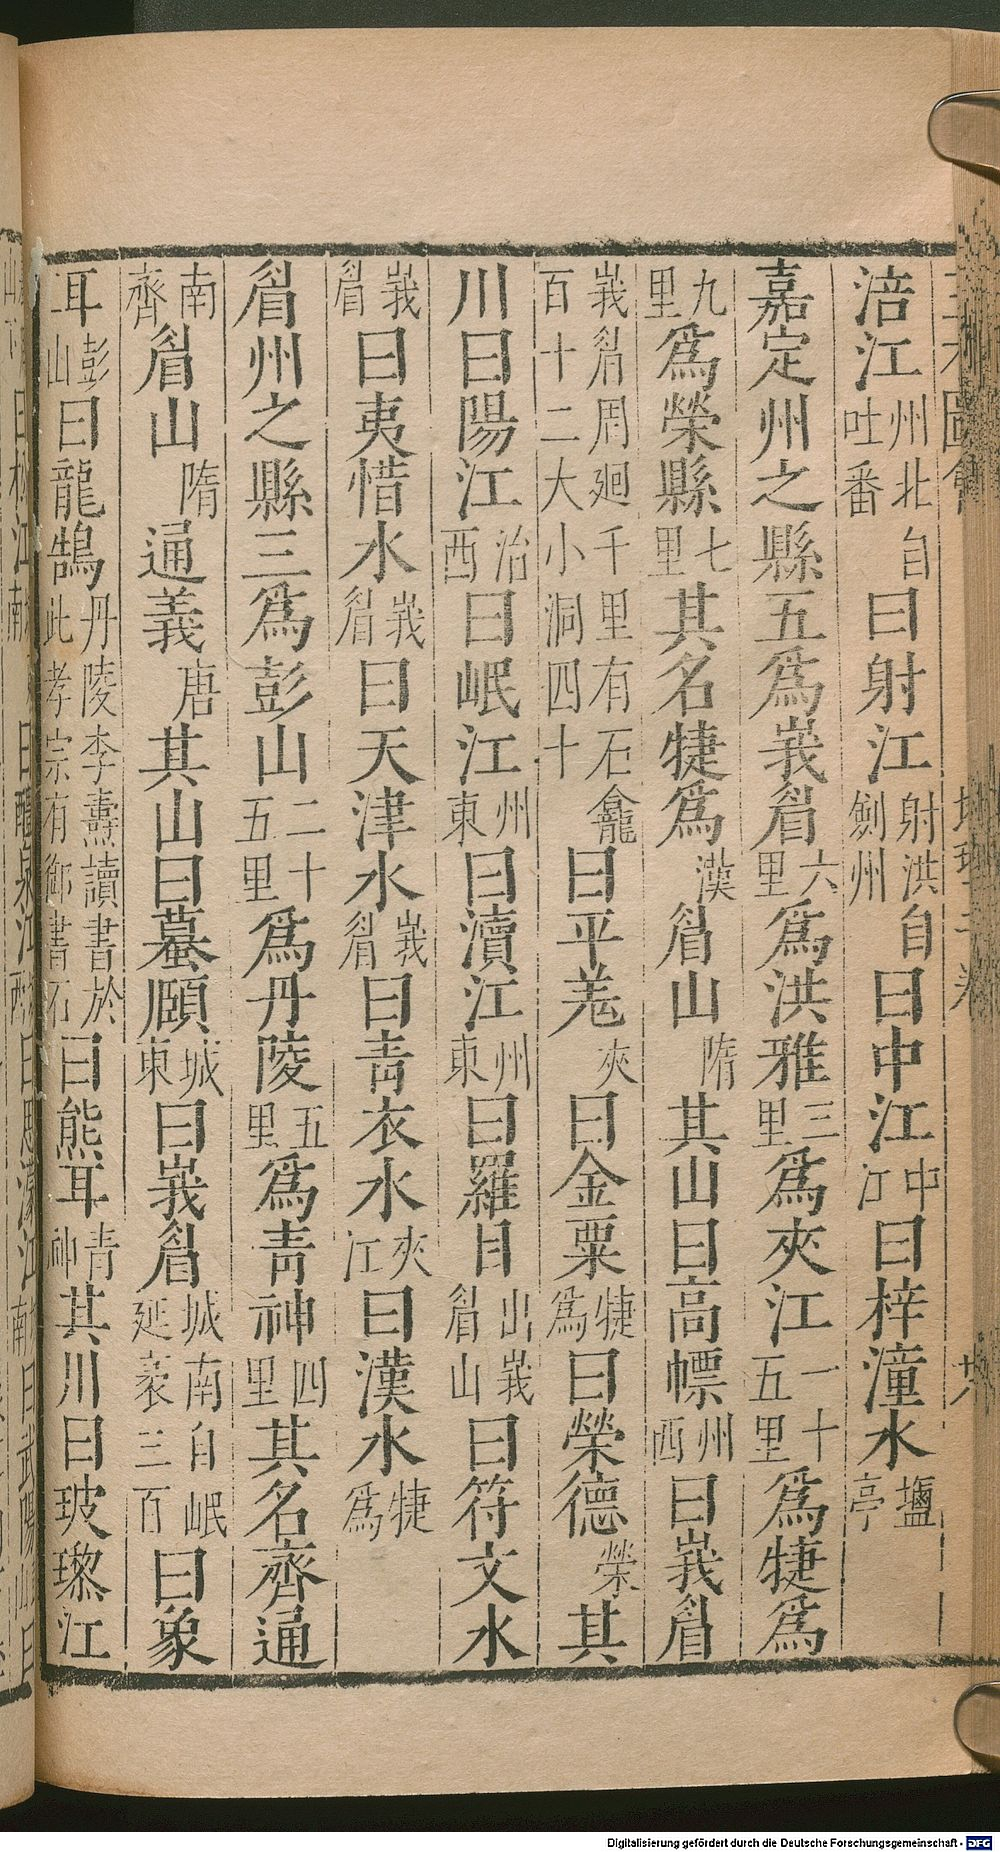 三才圖會 地理三卷
涪江州北自吐番曰射江射洪自劍州曰中江中江曰梓潼水塩亭
嘉定州之縣五爲峩眉六里爲洪雅三里爲夾江一十五里爲犍爲
九里爲榮縣七里其名犍爲漢眉山隋其山曰高幖州西曰峩眉
峩眉周廻千里有石龕百十二大小洞四十曰平羗夾曰金粟犍爲曰榮德榮其
川曰陽江治西曰岷江州東曰瀆江州東曰羅目出峩眉山曰符文水
峩眉曰夷惜水峩眉曰天津水峩眉曰青衣水夾江曰漢水犍爲
眉州之縣三爲彭山二十五里爲丹陵五里爲青神四里其名齊通
南齊眉山隋通義唐其山曰蟇頤城東曰峩眉城南自岷延袤三百曰象
耳彭山曰龍鵠丹陵李燾讀書於此孝宗有御書石曰熊耳青神其川曰玻瓈江
Digitalisierung gefördert durch die Deutsche Forschungsgemeinschaft - DFG